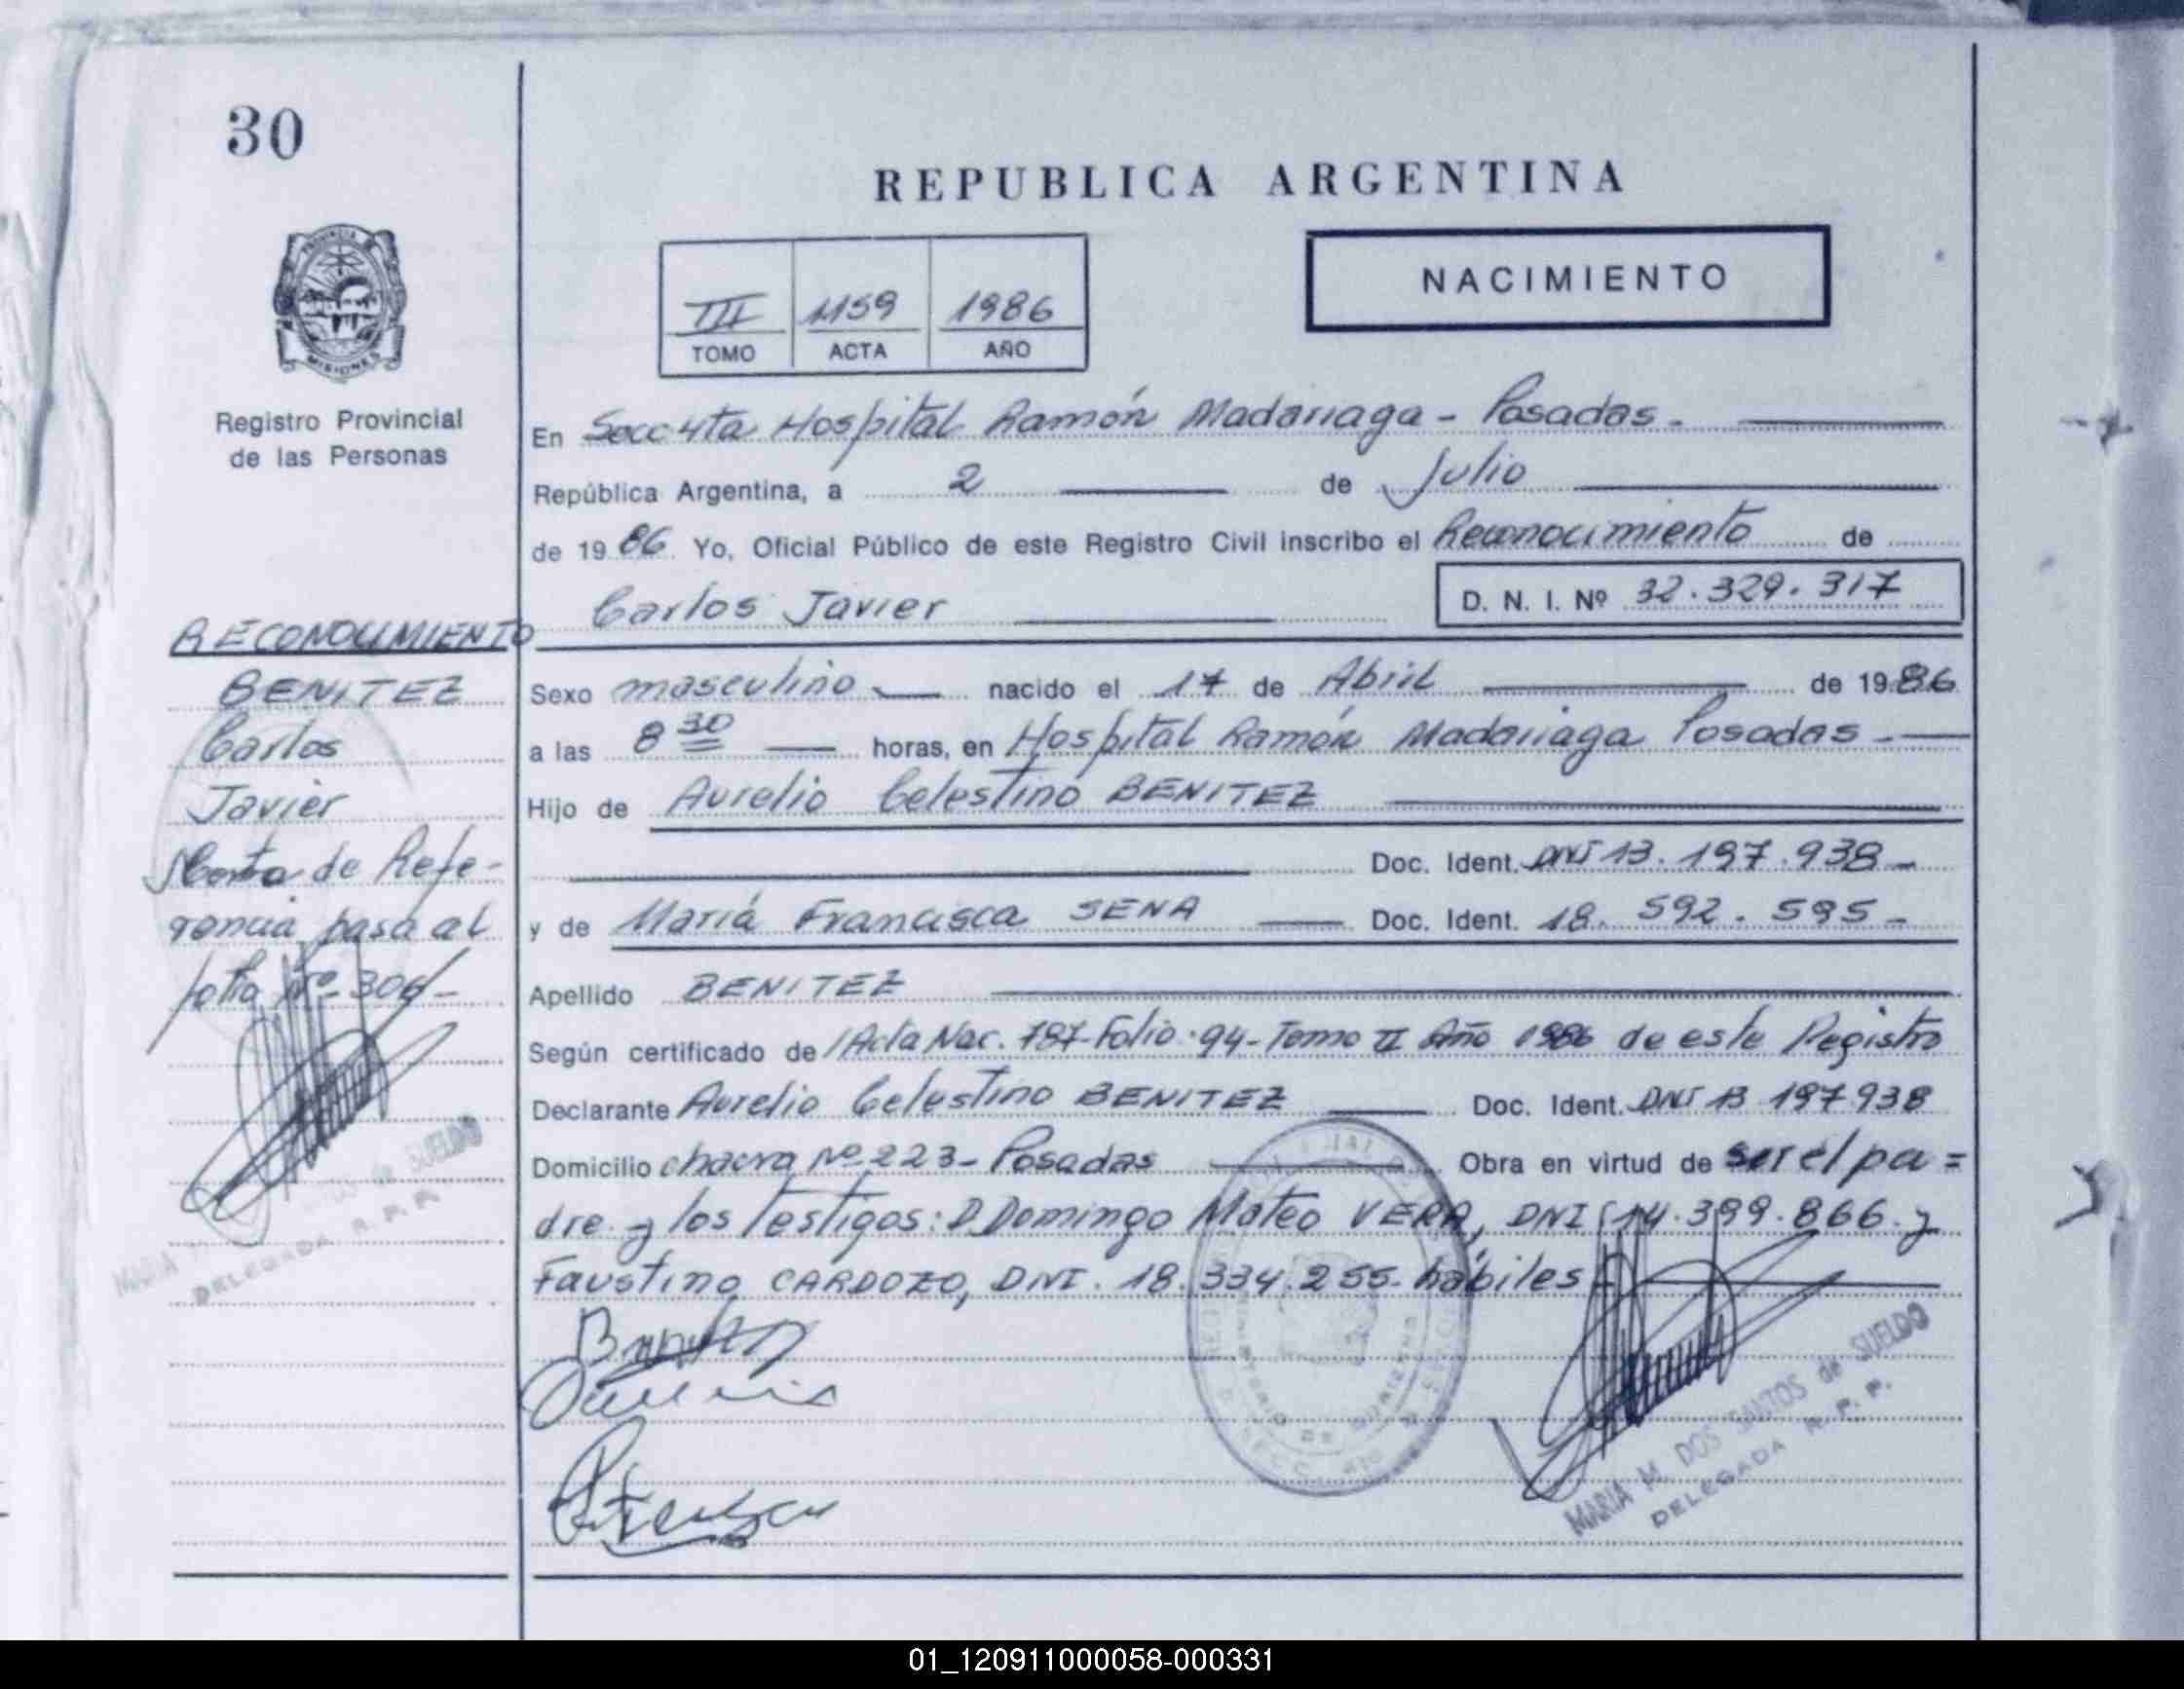 30
REPUBLICA ARGENTINA
NACIMIENTO
III 1159 1986
TOMO ACTA AÑO
PROVINCIA DE
MISIONES
Registro Provincial
de las Personas
En Secc 4ta Hospital Ramón Madariaga - Posadas.
República Argentina, a 2 de Julio
de 1986 Yo, Oficial Público de este Registro Civil inscribo el Reconocimiento de
Carlos Javier
D. N. I. Nº 32.329.317
Sexo masculino nacido el 17 de Abril de 1986
a las 8 30 horas, en Hospital Ramón Madariaga Posadas -
Hijo de Aurelio Celestino BENITEZ
Doc. Ident. DNI 13.197.938 -
y de María Francisca SENA Doc. Ident. 18.592.595 -
Apellido BENITEZ
Según certificado de Acta Nac. 787- Folio 94- Tomo II Año 1986 de este Registro
Declarante Aurelio Celestino BENITEZ Doc. Ident. DNI 13 197 938
Domicilio chacra Nº 223 - Posadas Obra en virtud de ser el pa=
dre y los Testigos: D Domingo Mateo VERA, DNI 14.399.866. y
Faustino CARDOZO, DNI. 18.334.255. hábiles
RECONOCIMIENTO
BENITEZ
Carlos
Javier
Nota de Refe-
rencia pasa al
folio Nº 306-
MARIA de SUELDO
DELEGADA R. P. P.
MARIA M. DOS SANTOS de SUELDO
DELEGADA R. P. P.
01_120911000058-000331